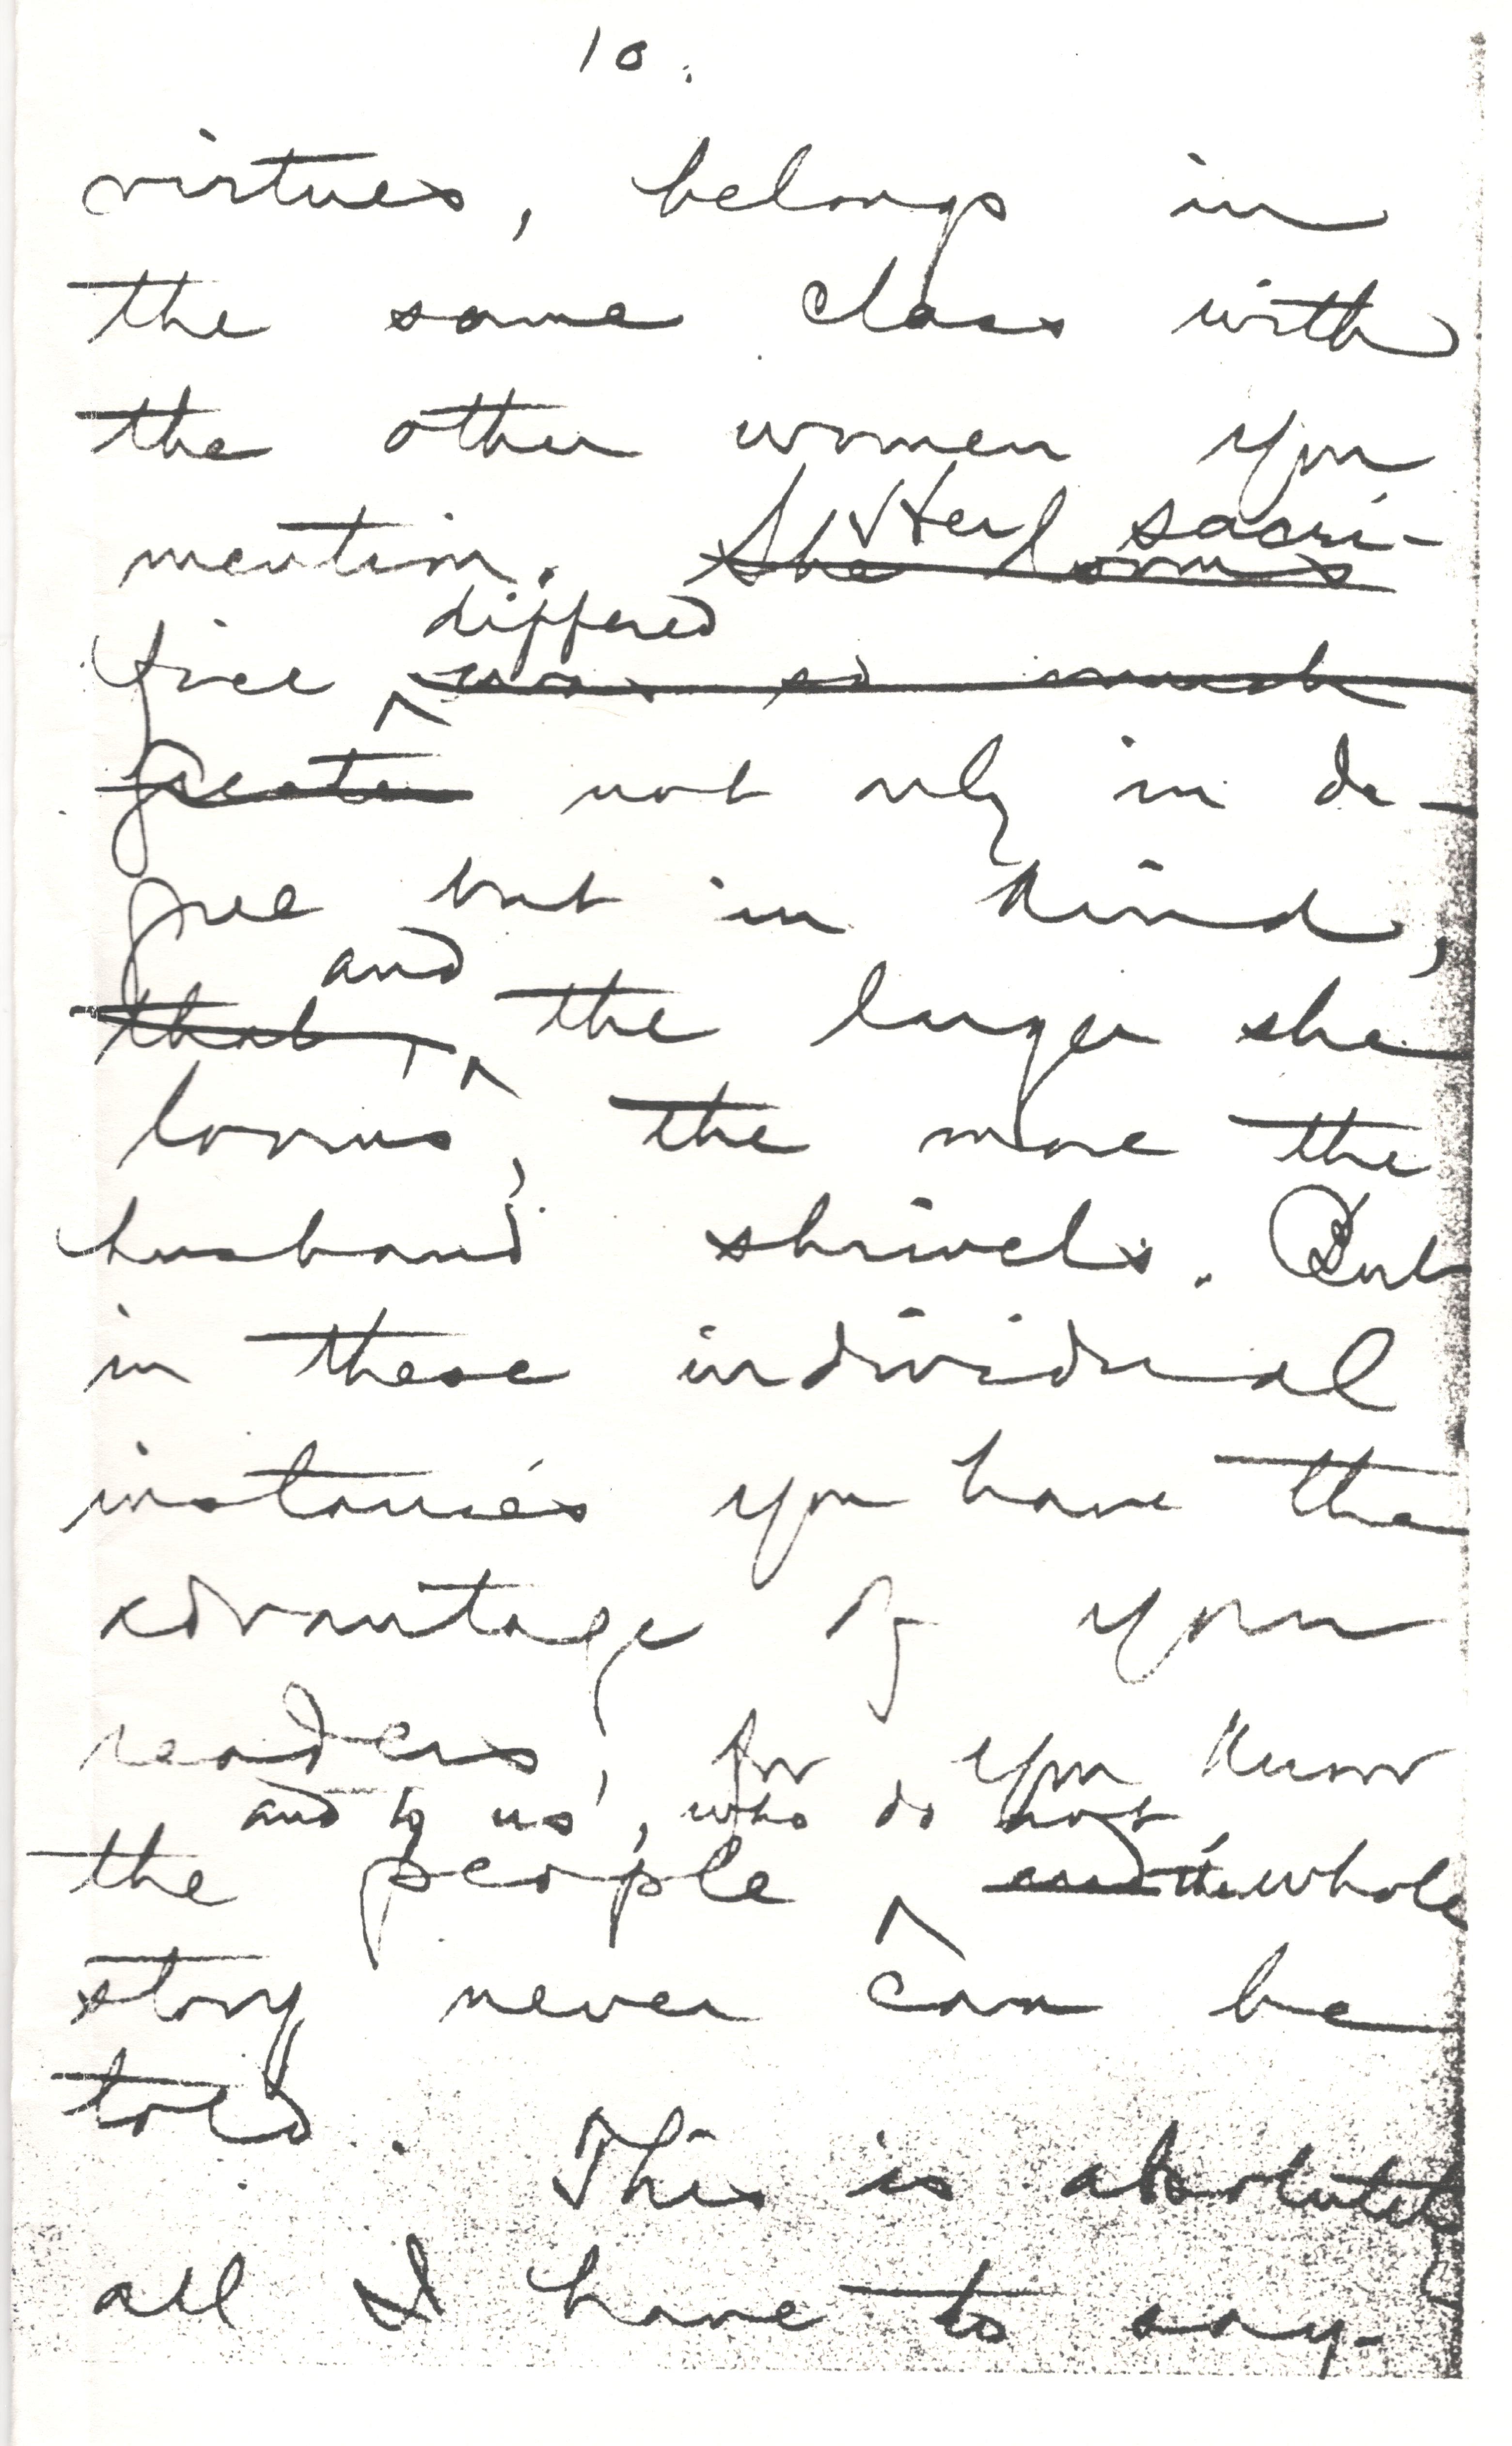 10.
virtues, belongs in
the same class with
the other women you
mention. She looms Her sacri-
fice differed was so much
greater not only in de-
gree but in kind,
that, and the larger she
looms, the more the
husband shrivels. But
in these individual
instances you have the
advantage of your
readers, for you know
and to us, who do not,
the people and the whole
story never can be
told. This is absolutely
all I have to say.